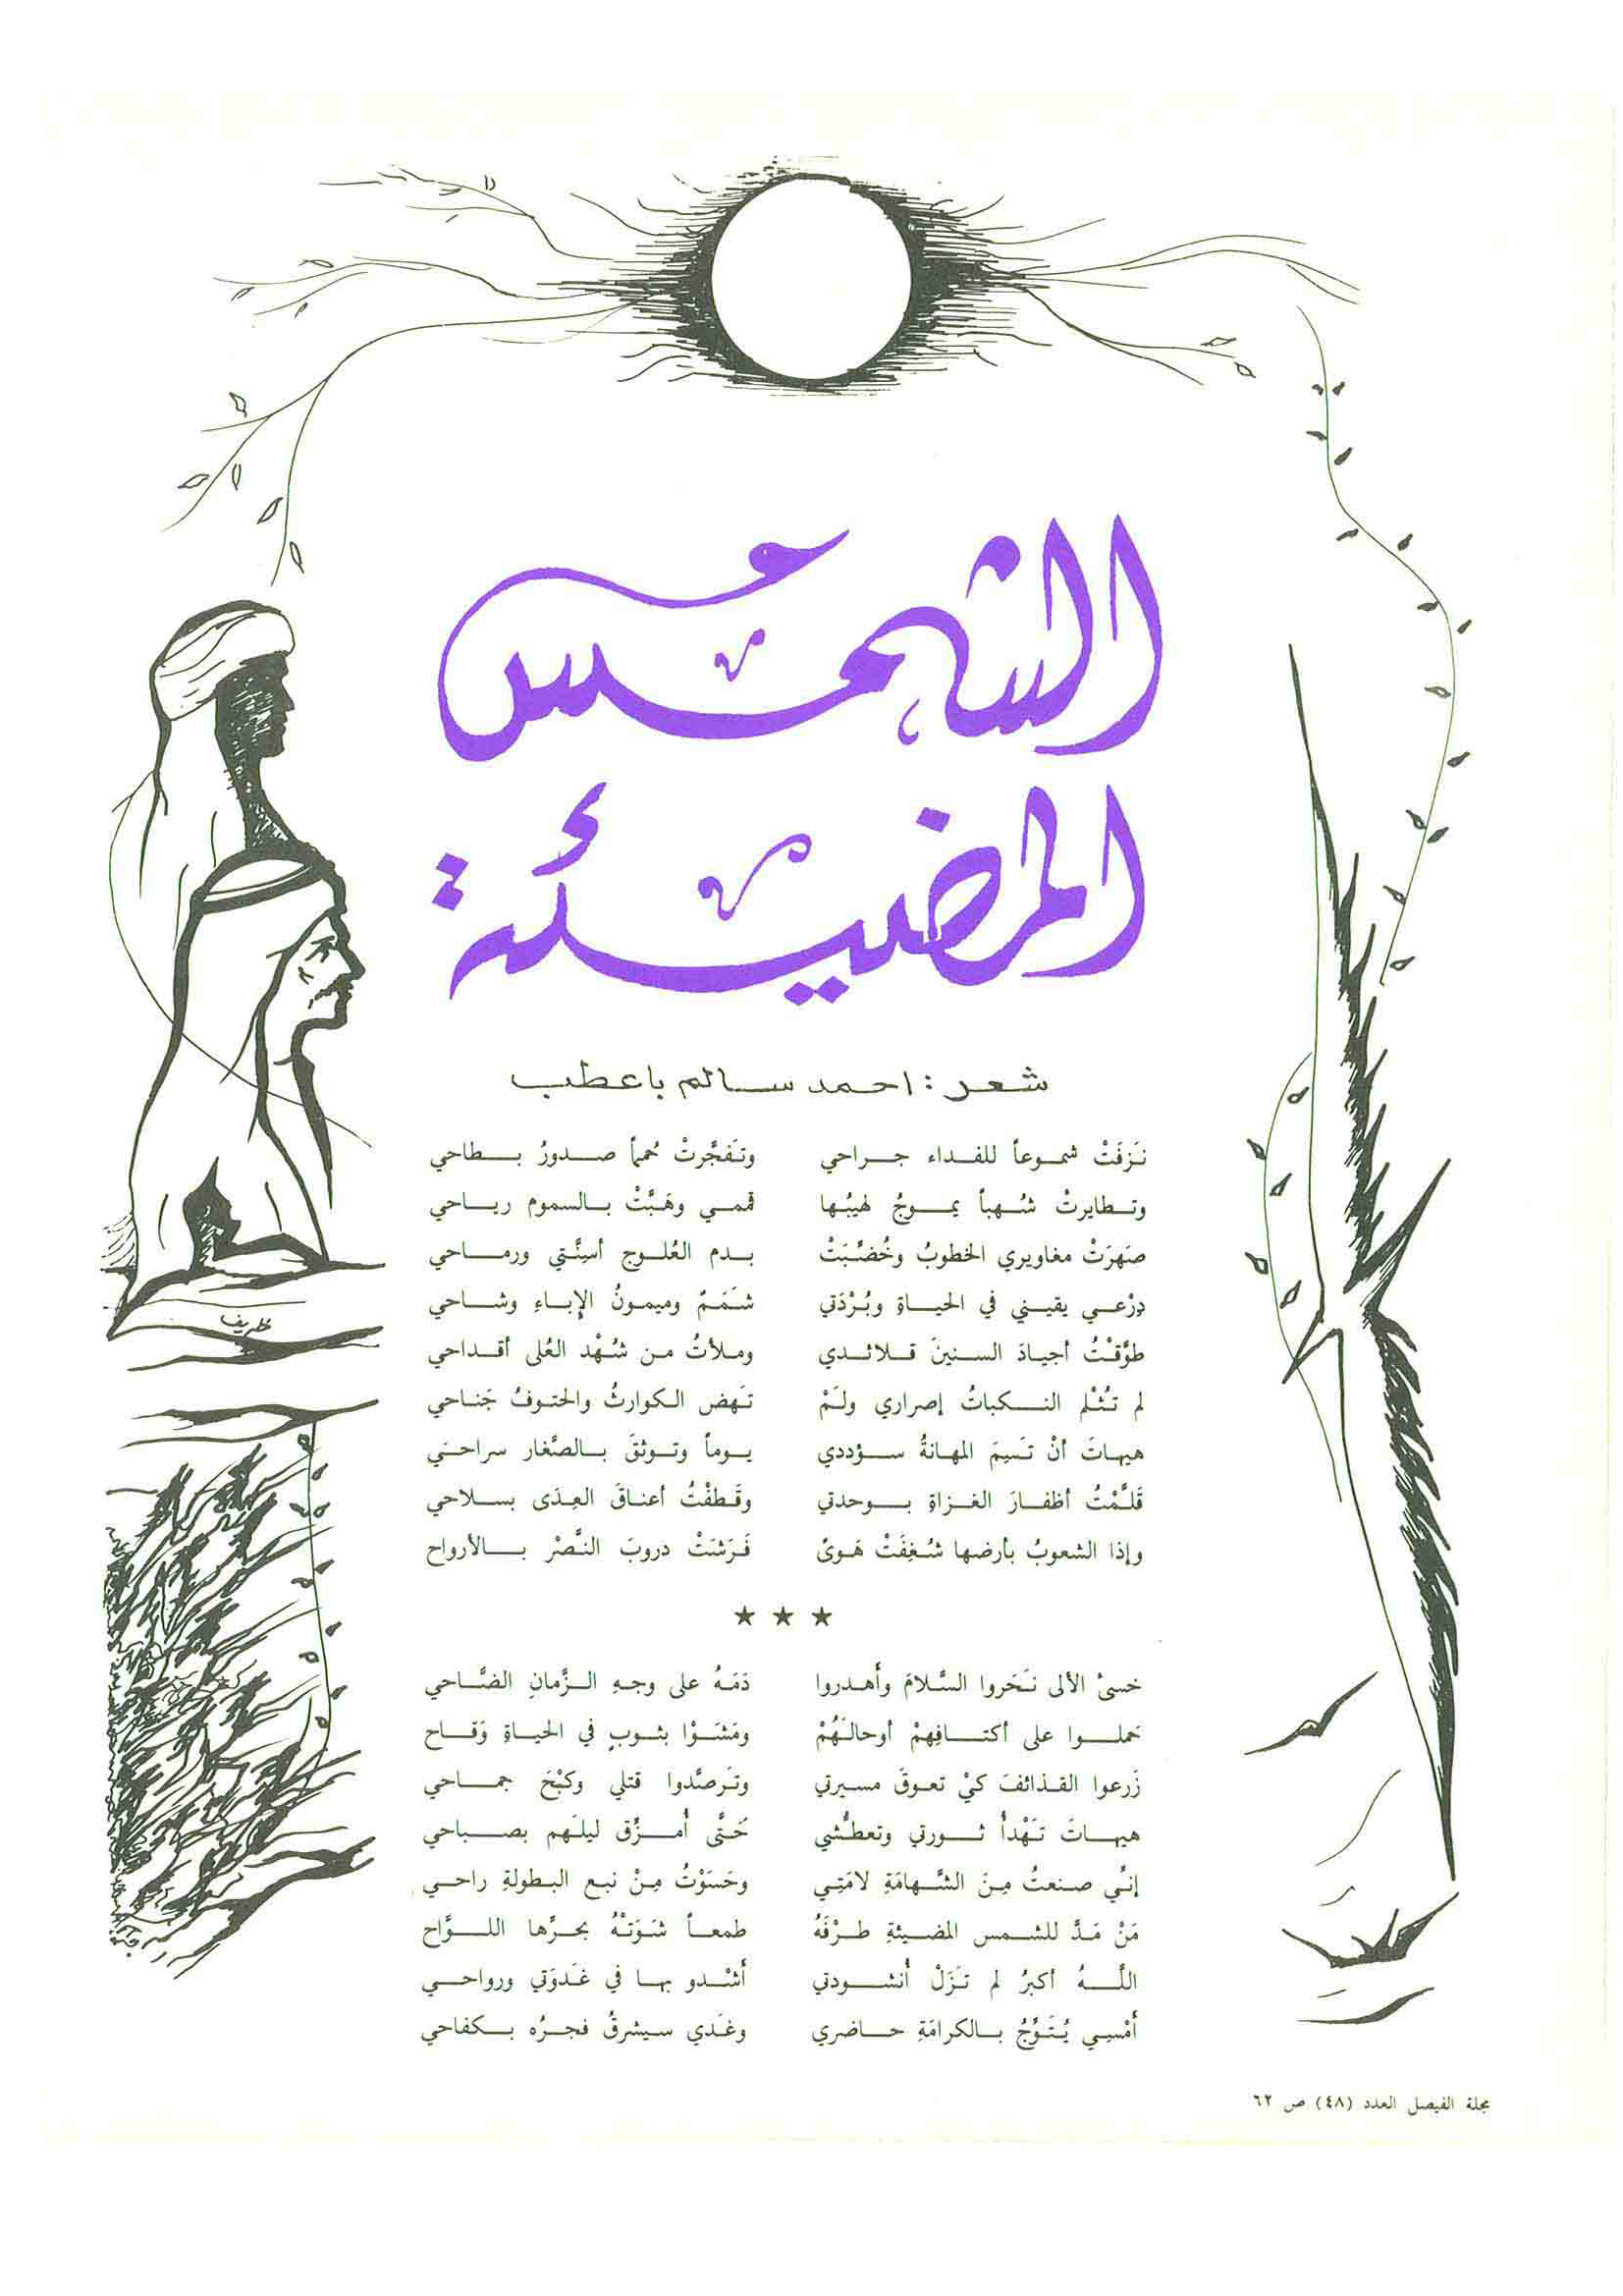 الشمس
المضيئة
شعر : احمد سالم باعطب
نَزَفَتْ شموعاً للفداء جراحي وتَفجَّرتْ حُمماً صدورُ بطاحي
وتطايرتْ شُهباً يموجُ لهيبُها قممي وهَبَّتْ بالسموم رياحي
صَهرَتْ مغاويري الخطوبُ وخُضِّبَتْ بدم العُلوج أسِنَّتي ورماحي
دِرْعي يقيني في الحياةِ وبُرْدَتي شَمَمٌ وميمونُ الإباءِ وشاحي
طوَّقتُ أجيادَ السنينَ قلائدي وملأتُ من شُهْد العُلى أقداحي
لم تُثْلم النكباتُ إصراري ولَمْ تَهض الكوارثُ والحتوفُ جَناحي
هيهاتَ أنْ تَسِيمَ المهانةُ سؤددي يوماً وتوثقَ بالصَّغار سراحي
قَلَّمْتُ أظفارَ الغزاةِ بوحدتي وقَطفْتُ أعناقَ العِدَى بسلاحي
وإذا الشعوبُ بأرضها شُغِفَتْ هَوىً فَرَشَتْ دروبَ النَّصْر بالأرواح
★ ★ ★
خسىْ الألى نَحَروا السَّلامَ وأَهدروا دَمَهُ على وجهِ الزَّمانِ الضَّاحي
حَملوا على أكتافِهمْ أوحالَهُمْ ومَشَوْا بثوبٍ في الحياةِ وَقاح
زَرعوا القذائفَ كيْ تعوقَ مسيرتي وتَرصَّدوا قتلي وكبْحَ جماحي
هيهاتَ تَهْدأُ ثورتي وتعطُّشي حَتَّى أُمزِّق ليلَهم بصباحي
إنِّي صنعتُ مِنَ الشَّهامَةِ لامَتِي وحَسَوْتُ مِنْ نبع البطولةِ راحي
مَنْ مَدَّ للشمس المضيئةِ طرْفَهُ طمعاً شَوَتْهُ بحرِّها اللوَّاح
اللَّهُ أكبرُ لم تَزَلْ أُنشودتي أَشْدو بها في غَدوَتي ورواحي
أمْسِي يُتَوَّجُ بالكرامَةِ حاضري وغَدي سيشرقُ فجرُه بكفاحي
ظريف
مجلة الفيصل العدد (٤٨) ص ٦٢